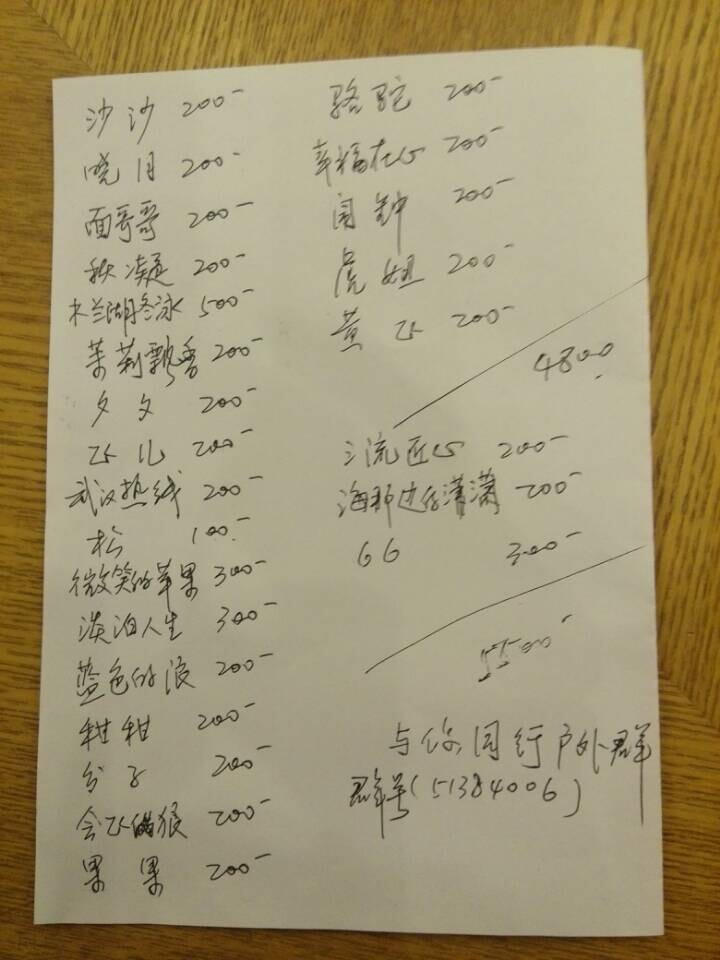 沙沙 200-
晓月 200-
面哥哥 200-
秋凝 200-
木兰湖冬泳 500-
茉莉飘香 200-
夕夕 200-
飞儿 200-
武汉热线 200-
松 100-
微笑的苹果 300-
淡泊人生 300-
蓝色的浪 200-
甜甜 200-
分子 200-
会飞的狼 200-
果果 200-
骆驼 200-
幸福在心 200-
闹钟 200-
虎妞 200-
黄飞 200-
4800
三流匠心 200-
海那边有潇潇 200-
66 300-
5500-
与你同行户外群
群号(51384006)